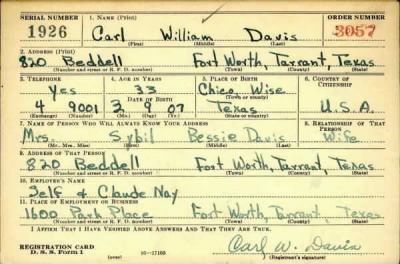 SERIAL NUMBER 1. NAME (Print) ORDER NUMBER
1926 Carl William Davis 3057
(First) (Middle) (Last)
2. ADDRESS (Print)
820 Beddell Fort Worth, Tarrant, Texas
(Number and street or R. F. D. number) (Town) (County) (State)
3. TELEPHONE 4. AGE IN YEARS 5. PLACE OF BIRTH 6. COUNTRY OF CITIZENSHIP
Yes 33 Chico, Wise
DATE OF BIRTH (Town or county)
4 9001 3 9 07 Texas U.S.A.
(Exchange) (Number) (Mo.) (Day) (Yr.) (State or country)
7. NAME OF PERSON WHO WILL ALWAYS KNOW YOUR ADDRESS 8. RELATIONSHIP OF THAT PERSON
Mrs. Sybil Bessie Davis Wife
(Mr., Mrs., Miss) (First) (Middle) (Last)
9. ADDRESS OF THAT PERSON
820 Beddell Fort Worth, Tarrant, Texas
(Number and street or R. F. D. number) (Town) (County) (State)
10. EMPLOYER'S NAME
Self & Claude Nay
11. PLACE OF EMPLOYMENT OR BUSINESS
1600 Park Place Fort Worth, Tarrant, Texas
(Number and street or R. F. D. number) (Town) (County) (State)
I AFFIRM THAT I HAVE VERIFIED ABOVE ANSWERS AND THAT THEY ARE TRUE.
REGISTRATION CARD
D. S. S. Form 1 (over) 16-17105 Carl W. Davis
(Registrant's signature)